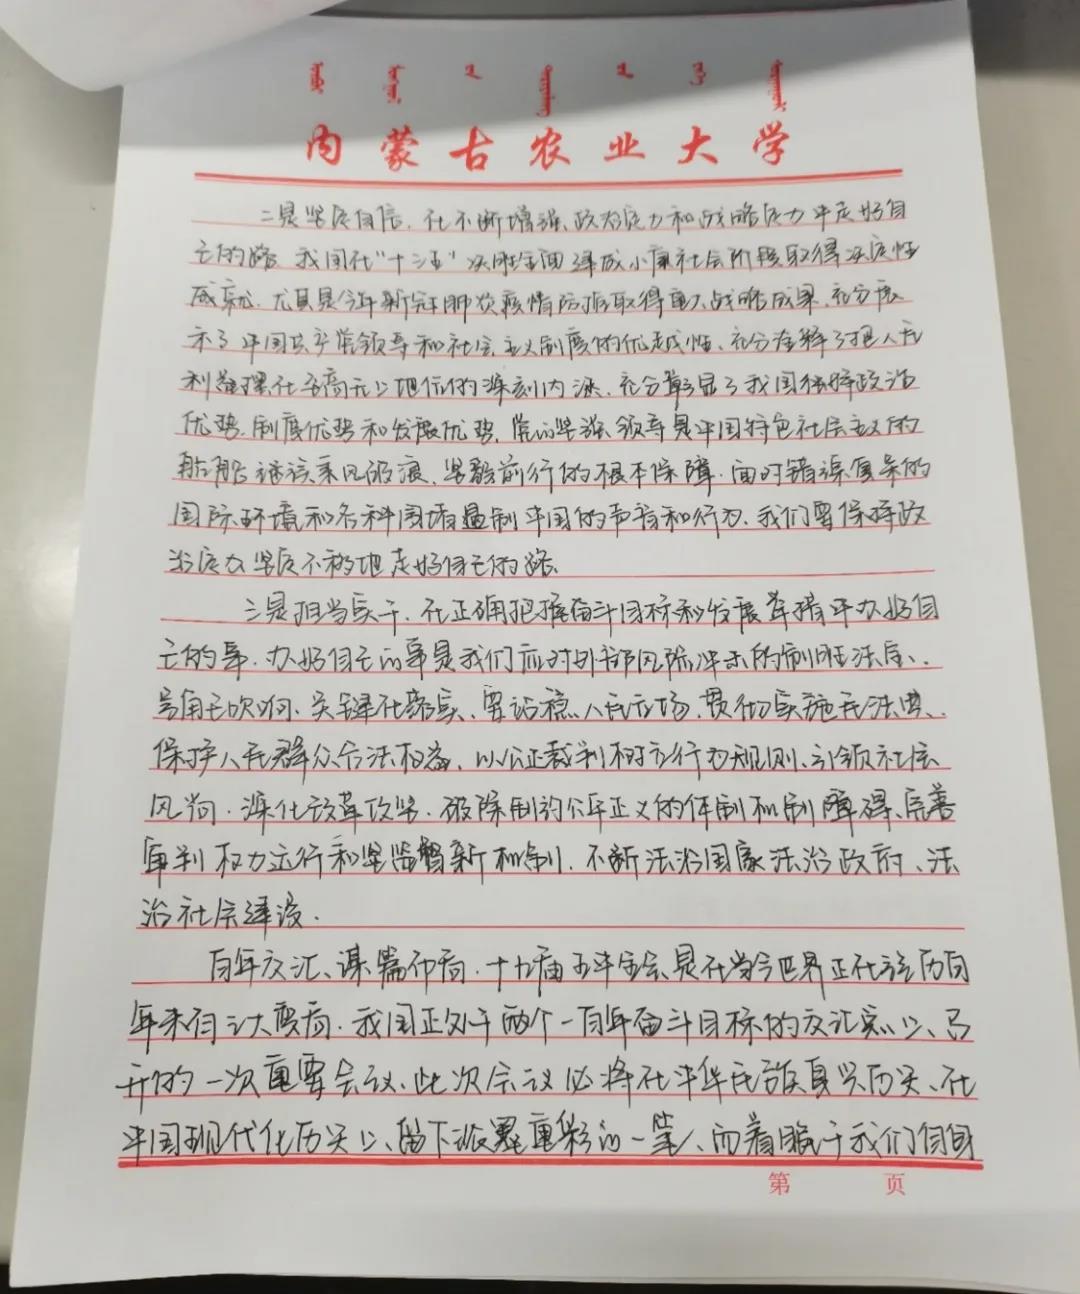 内蒙古农业大学
二是坚定自信,在不断增强政治定力和战略定力中走好自
己的路 我国在“十三五”决胜全面建成小康社会阶段取得决定性
成就,尤其是今年新冠肺炎疫情防控取得重大战略成果,充分展
示了中国共产党领导和社会主义制度的优越性、充分诠释了把人民
利益摆在至高无上地位的深刻内涵、充分彰显了我国独特政治
优势、制度优势和发展优势,党的坚强领导是中国特色社会主义的
船舶 乘风破浪、坚毅前行的根本保障.面对错综复杂的
国际环境和各种围堵遏制中国的声音和行为,我们要保持政
治定力坚定不移地走好自己的路.
三是担当实干,在正确把握奋斗目标和发展举措中办好自
己的事.办好自己的事是我们应对外部风险冲击的制胜法宝、
号角已吹响,关键在落实、要站稳人民立场,贯彻实施民法典、
保护人民群众合法权益、以公正裁判树立行为规则、引领社会
风尚.深化改革攻坚.破除制约公平正义的体制机制障碍、完善
审判权力运行和监督新机制.不断法治国家法治政府、法
治社会建设.
百年交汇、谋篇布局.十九届五中全会是在当今世界正在经历百
年未有之大变局.我国正处于两个一百年奋斗目标的交汇点上、召
开的一次重要会议、此次会议必将在中华民族复兴历史、在
中国现代化历史上、留下浓墨重彩的一笔、而着眼于我们自身
第 页